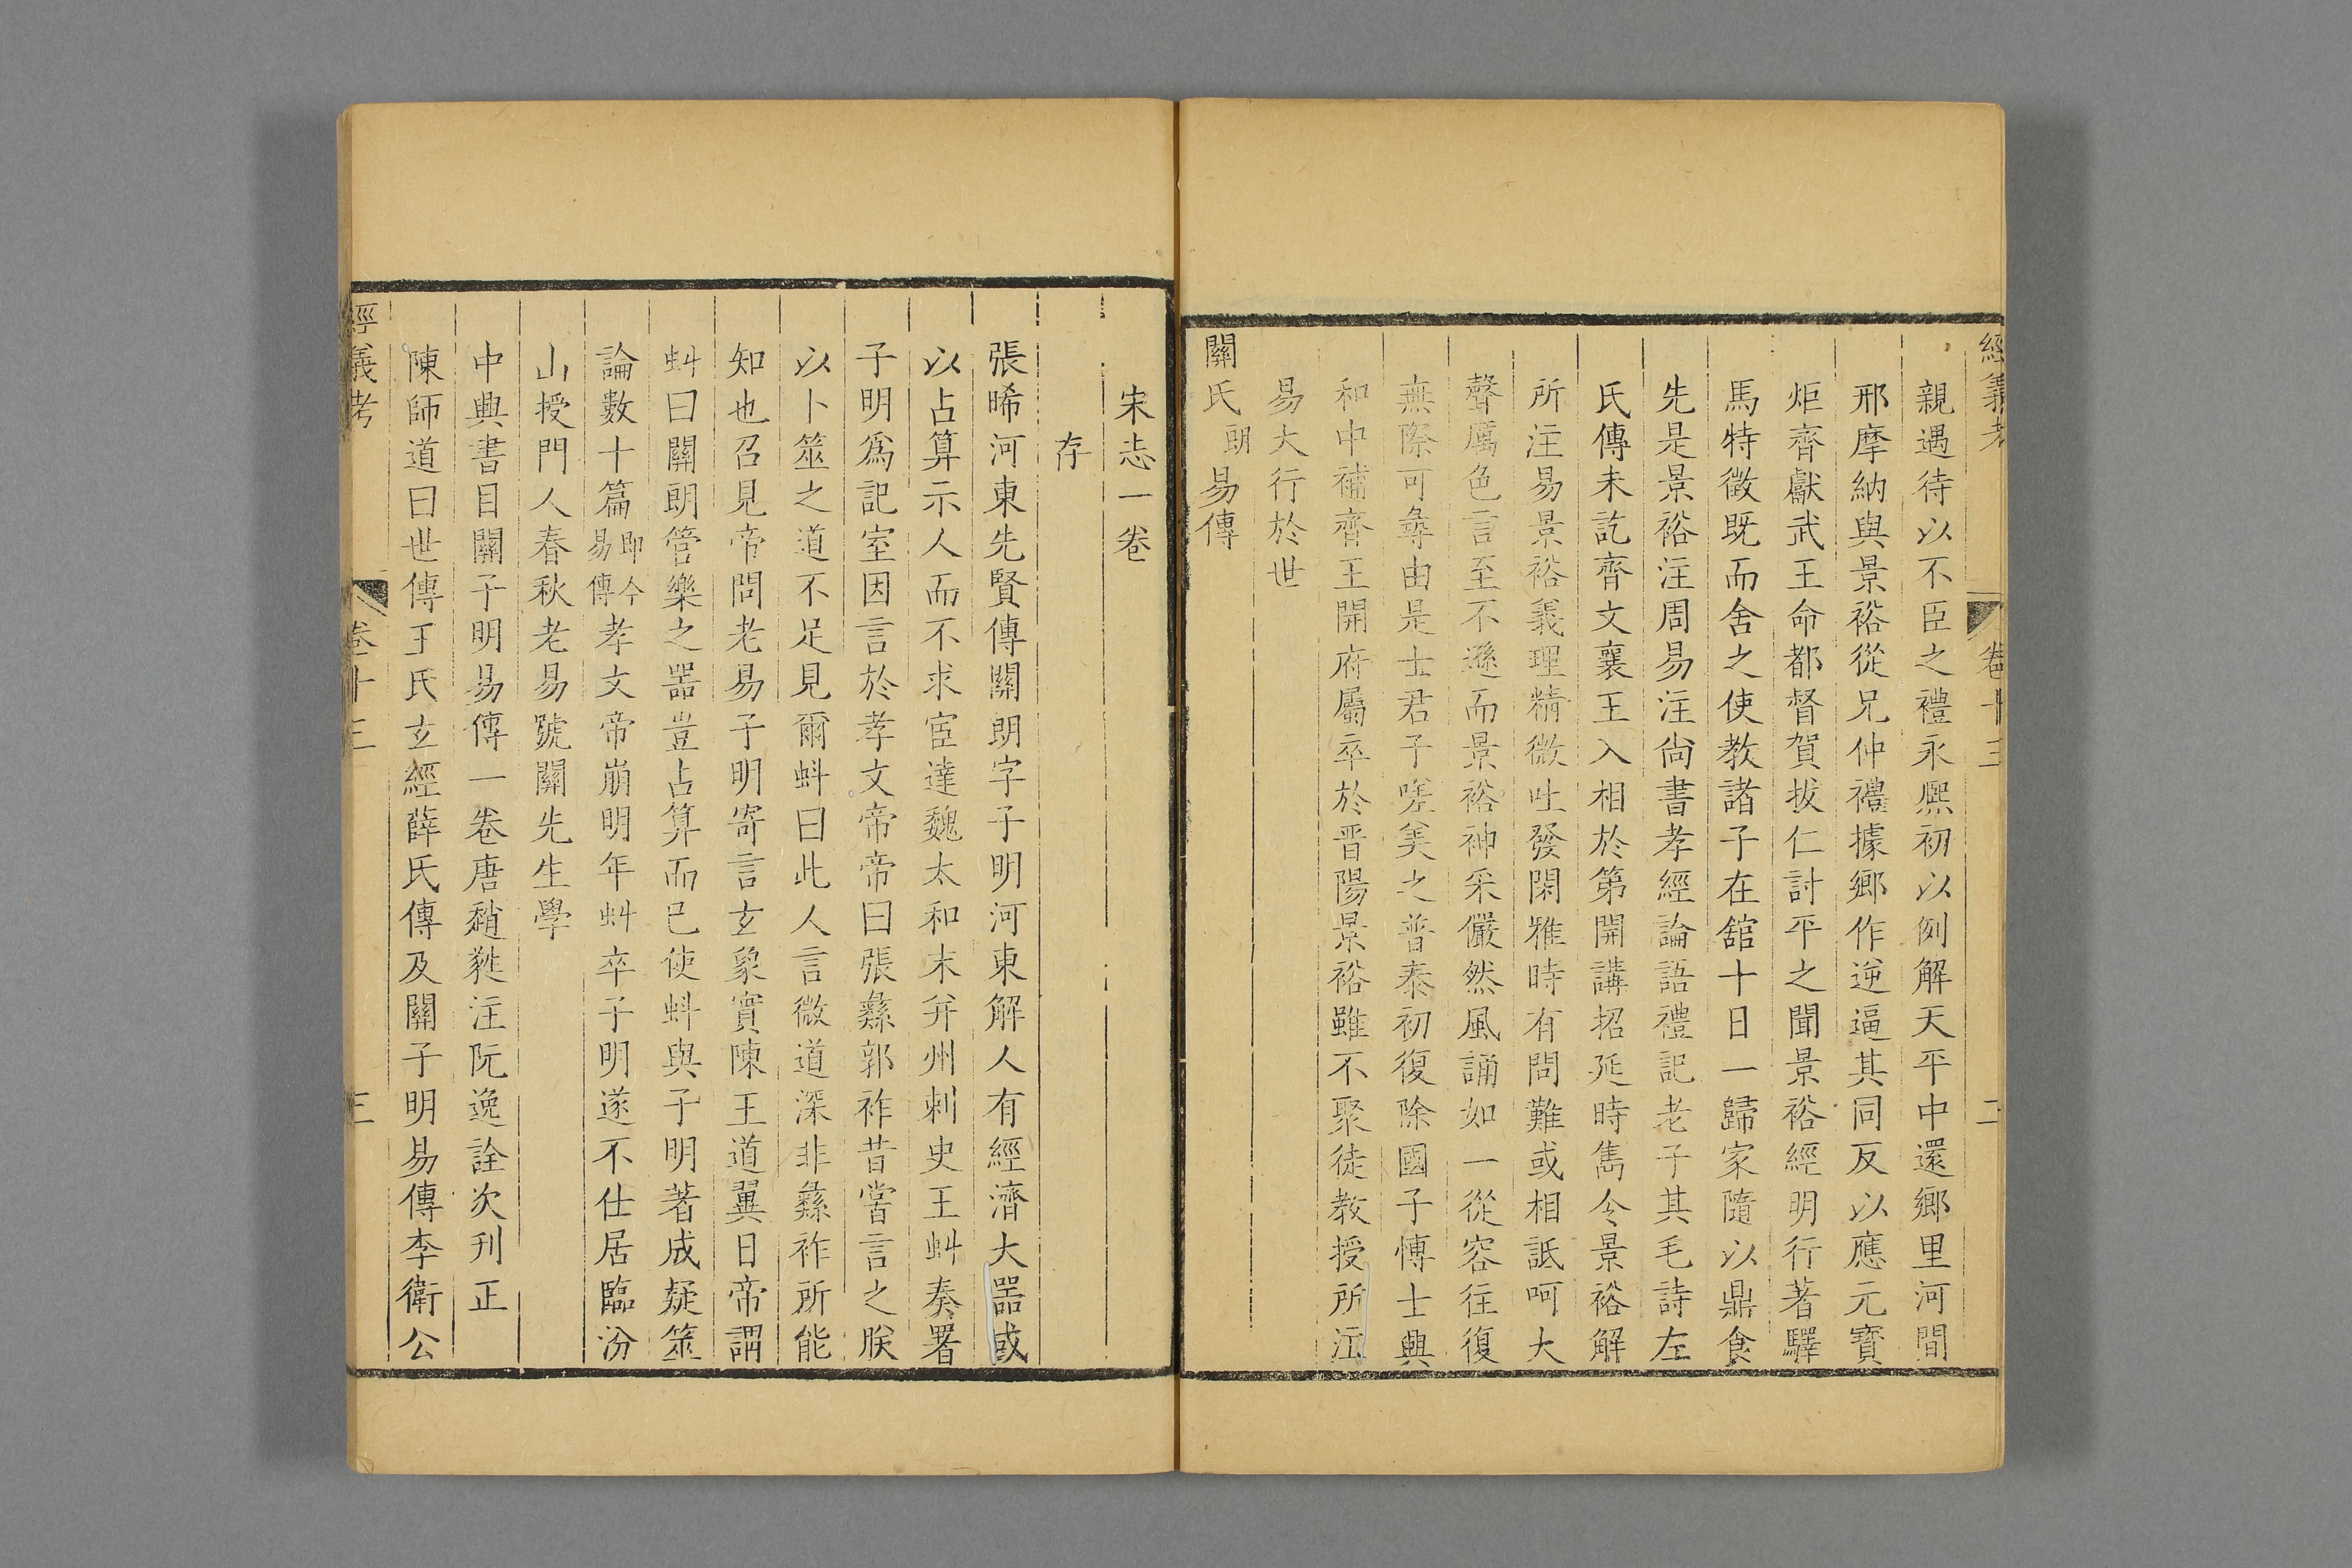 經義考 卷十三 二
親遇待以不臣之禮永熙初以例解天平中還鄉里河間
邢摩納與景裕從兄仲禮據鄉作逆逼其同反以應元寶
炬齊獻武王命都督賀拔仁討平之聞景裕經明行著驛
馬特徵既而舍之使教諸子在舘十日一歸家隨以鼎食
先是景裕注周易注尙書孝經論語禮記老子其毛詩左
氏傳未訖齊文襄王入相於第開講招延時雋令景裕解
所注易景裕義理精微吐發閑雅時有問難或相詆呵大
聲厲色言至不遜而景裕神采儼然風誦如一從容往復
無際可尋由是士君子嗟美之普泰初復除國子博士興
和中補齊王開府屬卒於晋陽景裕雖不聚徒教授所注
易大行於世
關氏朗易傳
宋志一卷
存
張晞河東先賢傳關朗字子明河東解人有經濟大器或
以占算示人而不求宦達魏太和末幷州刺史王虯奏署
子明爲記室因言於孝文帝帝曰張彝郭祚昔嘗言之朕
以卜筮之道不足見爾虯曰此人言微道深非彝祚所能
知也召見帝問老易子明寄言玄象實陳王道翼日帝謂
虯曰關朗管樂之器豈占算而已使虯與子明著成疑筮
論數十篇即今易傳孝文帝崩明年虯卒子明遂不仕居臨汾
山授門人春秋老易號關先生學
中興書目關子明易傳一卷唐趙蕤注阮逸詮次刋正
陳師道曰世傳王氏玄經薛氏傳及關子明易傳李衛公
經義考 卷十三 三